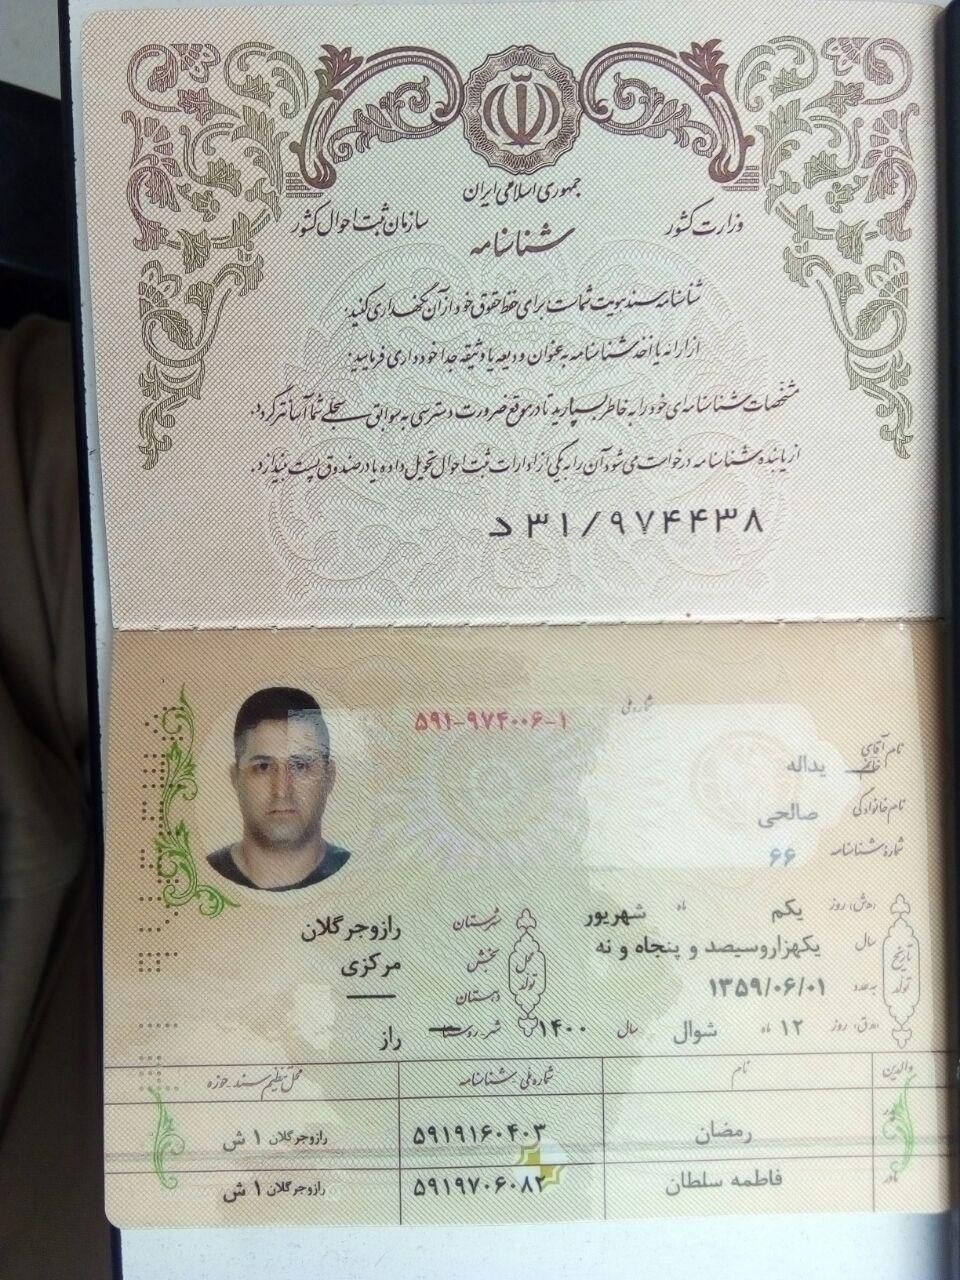 جمهوری اسلامی ایران
وزارت کشور
سازمان ثبت احوال کشور
شناسنامه
شناسنامه سند هویت شماست برای حفظ حقوق خود از آن نگهداری کنید.
از ارائه یا اخذ شناسنامه به عنوان ودیعه یا وثیقه جداً خودداری فرمایید.
مشخصات شناسنامه‌ای خود را به خاطر بسپارید تا در موقع ضرورت دسترسی به سوابق سجلی شما آسانتر گردد.
از یابنده شناسنامه درخواست می‌شود آن را به یکی از ادارات ثبت احوال تحویل داده یا در صندوق پست بیندازد.
د ۳۱/۹۷۴۴۳۸
شماره ملی ۵۹۱-۹۷۴۰۰۶-۱
نام آقای خانم یداله
نام خانوادگی صالحی
شماره شناسنامه ۶۶
تاریخ تولد
(ه.ش) روز یکم ماه شهریور
سال یکهزاروسیصد و پنجاه و نه
به عدد ۱۳۵۹/۰۶/۰۱
(ه.ق) روز ۱۲ ماه شوال سال ۱۴۰۰
محل تولد
شهرستان رازوجرگلان
بخش مرکزی
دهستان —
شهر روستا راز
والدین نام شماره ملی شناسنامه محل تنظیم سند حوزه
پدر رمضان ۵۹۱۹۱۶۰۴۰۳ رازوجرگلان ۱ ش
مادر فاطمه سلطان ۵۹۱۹۷۰۶۰۸۲ رازوجرگلان ۱ ش